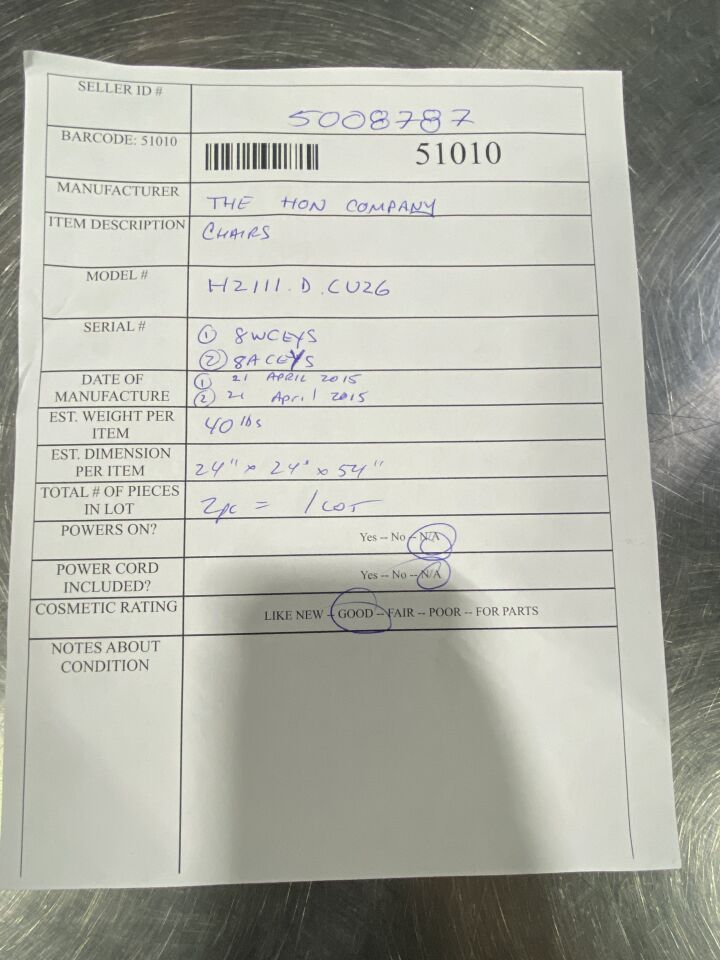 SELLER ID #
5008787
BARCODE: 51010
51010
MANUFACTURER
THE HON COMPANY
ITEM DESCRIPTION
CHAIRS
MODEL #
H2111.D.CU26
SERIAL #
① 8WCEYS
② 8ACEYS
DATE OF MANUFACTURE
① 21 APRIL 2015
② 21 April 2015
EST. WEIGHT PER ITEM
40 lbs
EST. DIMENSION PER ITEM
24" x 24" x 54"
TOTAL # OF PIECES IN LOT
2pc = 1 LOT
POWERS ON?
Yes -- No -- N/A
POWER CORD INCLUDED?
Yes -- No -- N/A
COSMETIC RATING
LIKE NEW -- GOOD -- FAIR -- POOR -- FOR PARTS
NOTES ABOUT CONDITION